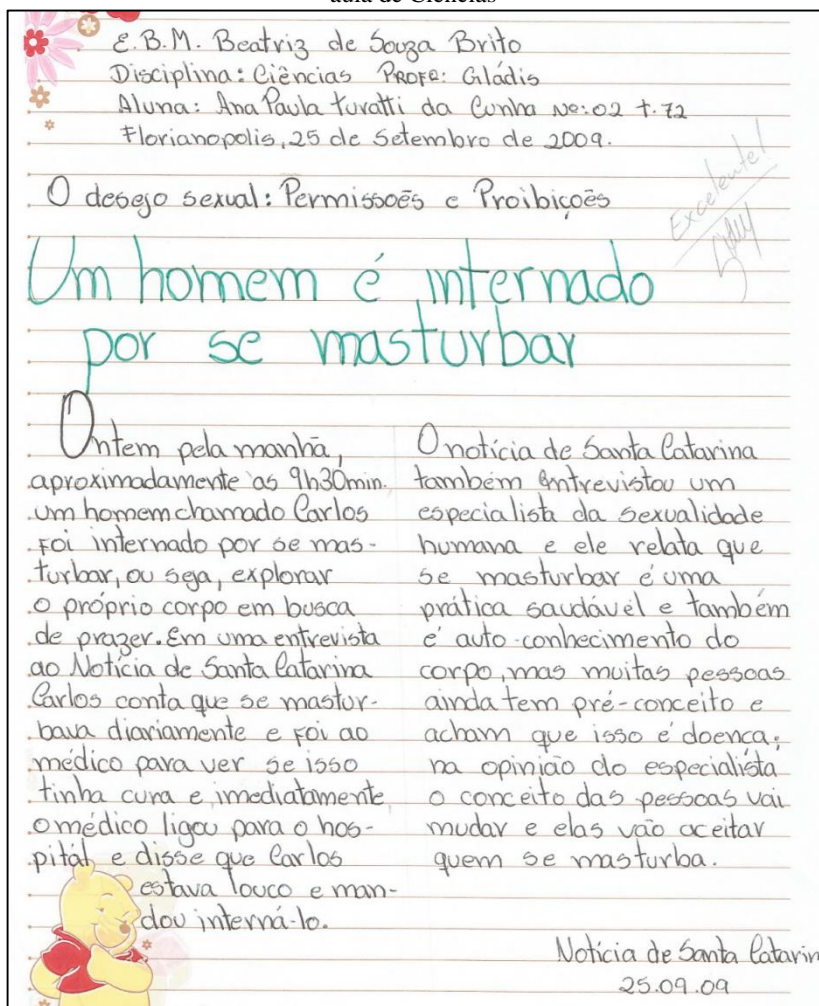 aula de Ciências
E.B.M. Beatriz de Souza Brito
Disciplina: Ciências PROFª: Gládis
Aluna: Ana Paula Turatti da Cunha Nº: 02 t. 72
Florianopolis, 25 de Setembro de 2009.
Excelente!
O desejo sexual: Permissoēs e Proibiçoēs
Um homem é internado
por se masturbar
Ontem pela manhã,
aproximadamente às 9h30min.
um homem chamado Carlos
foi internado por se mas-
turbar, ou seja, explorar
o próprio corpo em busca
de prazer. Em uma entrevista
ao Notícia de Santa Catarina
Carlos conta que se mastur-
bava diariamente e foi ao
médico para ver se isso
tinha cura e imediatamente
o médico ligou para o hos-
pital e disse que Carlos
estava louco e man-
dou interná-lo.
O notícia de Santa Catarina
também entrevistou um
especialista da sexualidade
humana e ele relata que
se masturbar é uma
prática saudável e também
é auto-conhecimento do
corpo, mas muitas pessoas
ainda tem pré-conceito e
acham que isso é doença;
na opinião do especialista
o conceito das pessoas vai
mudar e elas vão aceitar
quem se masturba.
Notícia de Santa Catarin
25.09.09